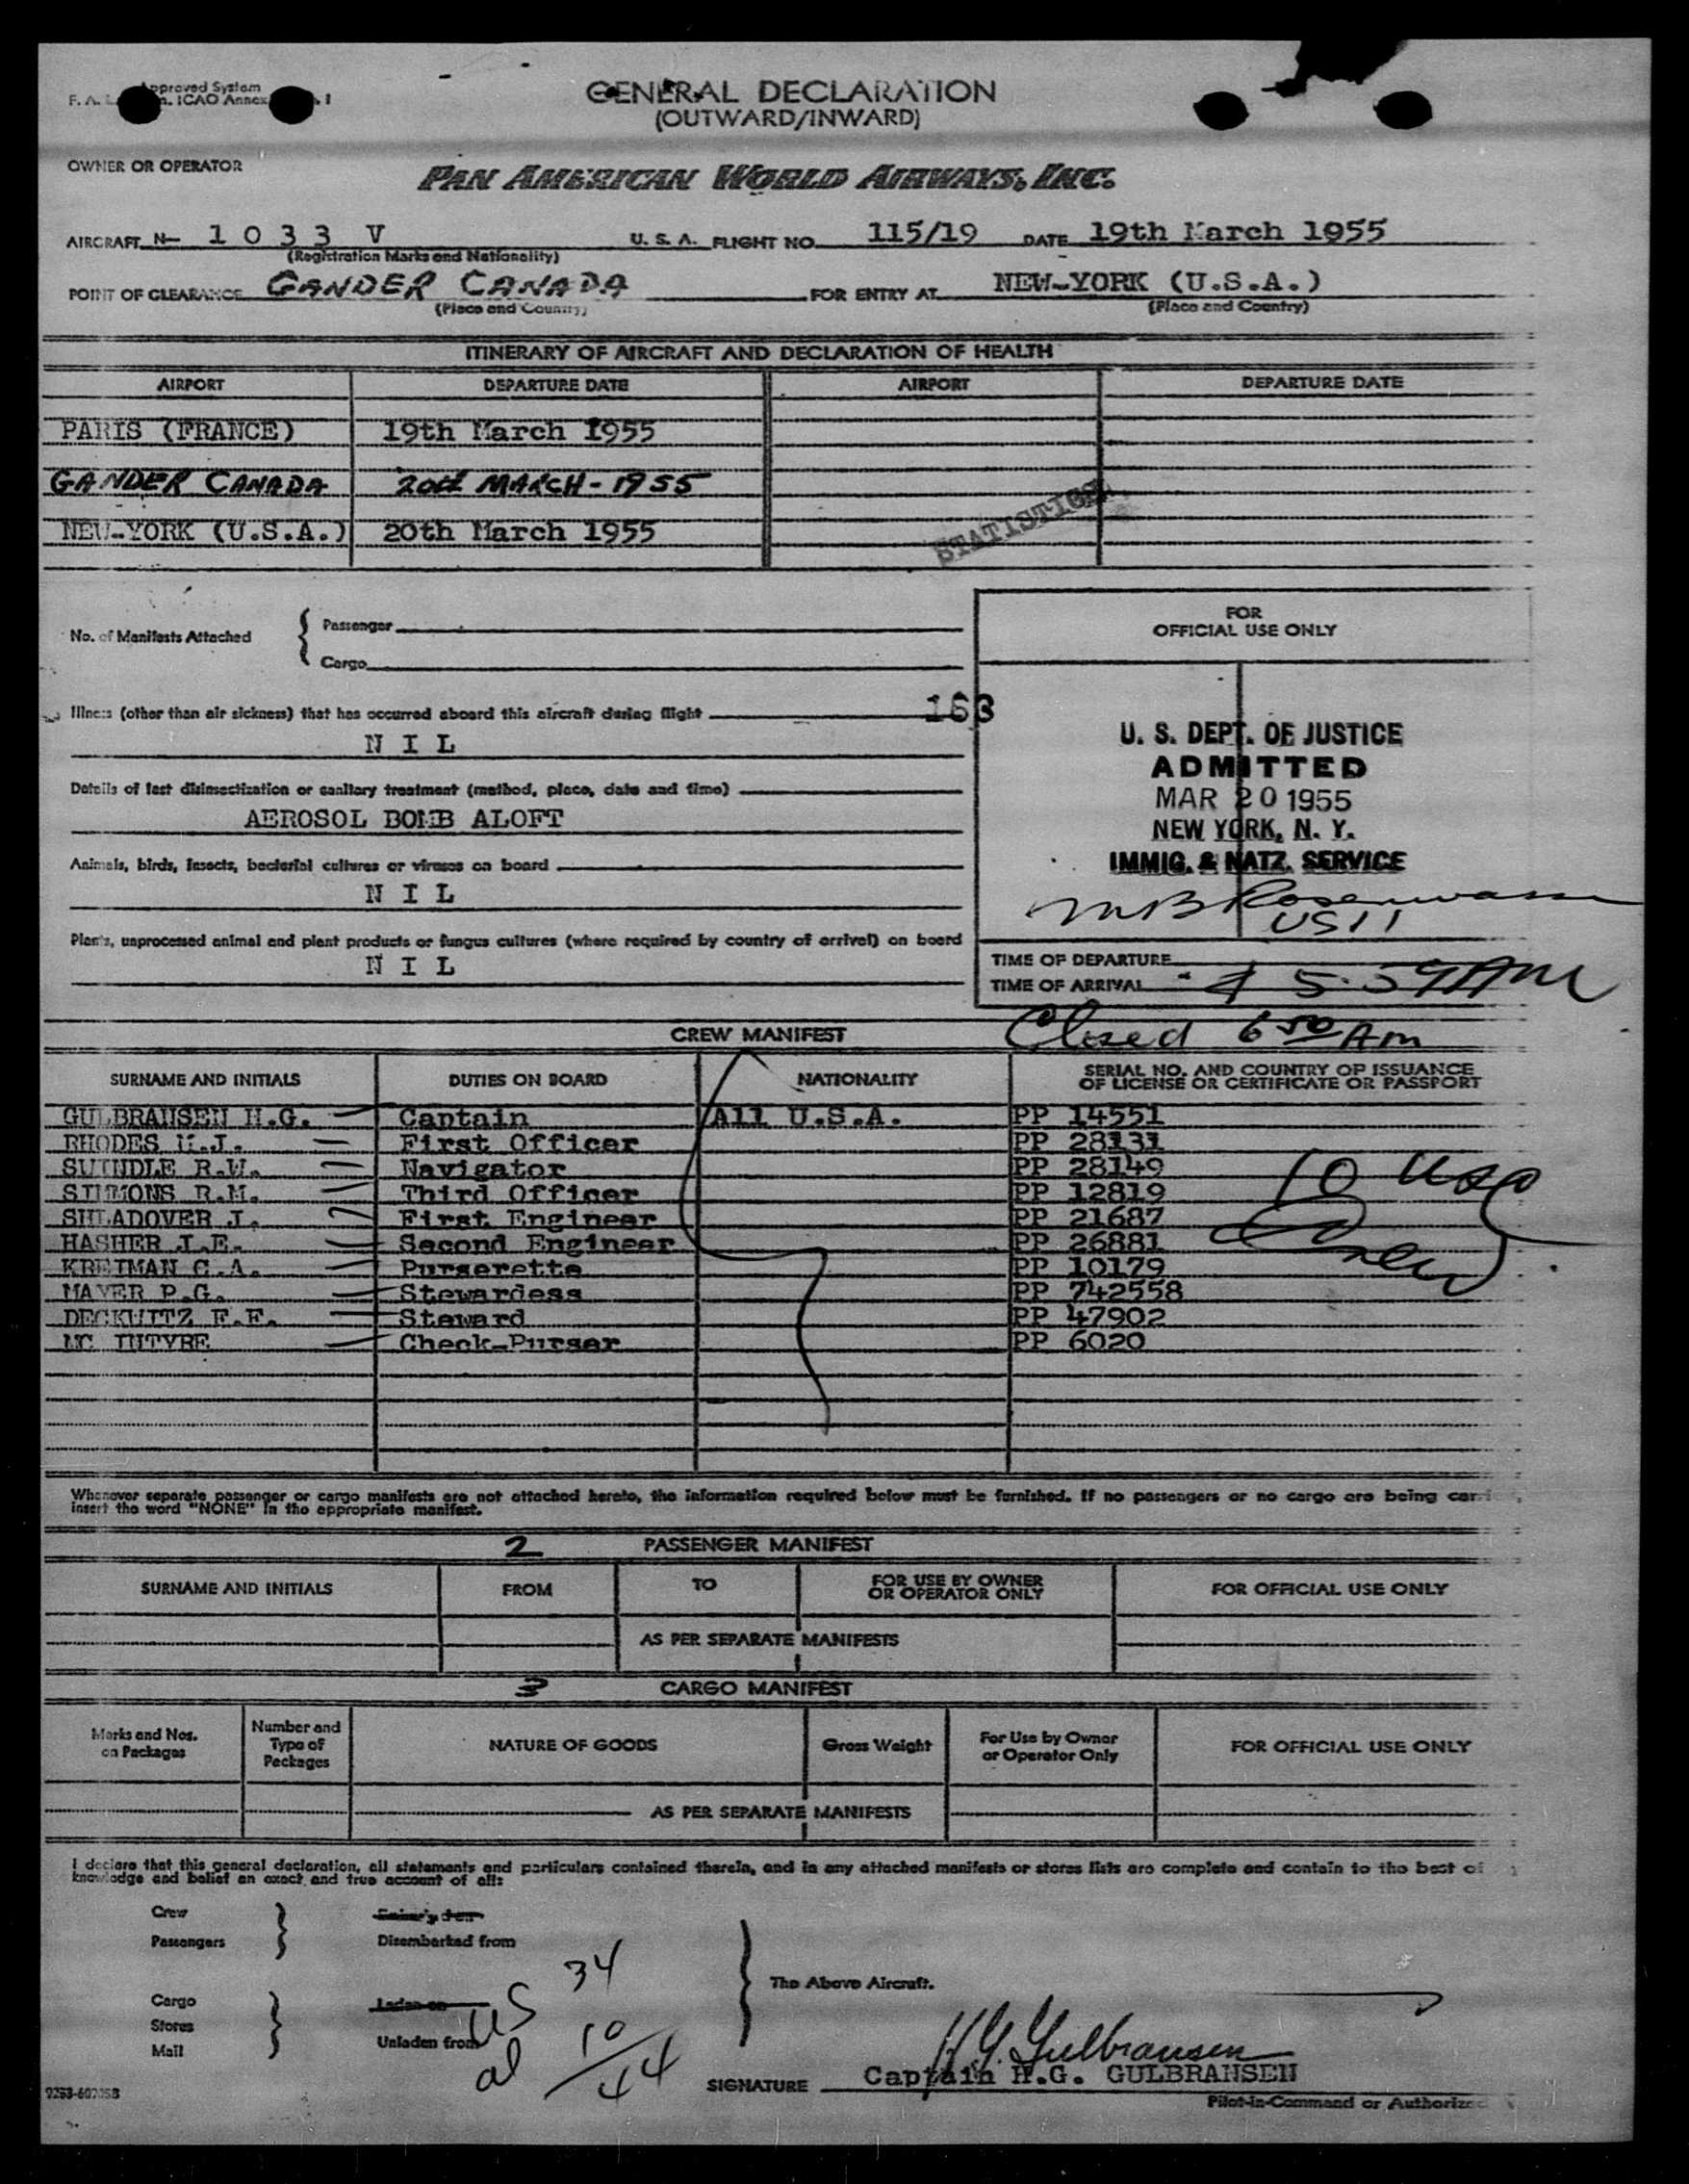 Approved System
GENERAL DECLARATION
(OUTWARD/INWARD)
OWNER OR OPERATOR
PAN AMERICAN WORLD AIRWAYS, INC.
AIRCRAFT N- 1 0 3 3 V U. S. A. FLIGHT NO. 115/19 DATE 19th March 1955
(Registration Marks and Nationality)
POINT OF CLEARANCE GANDER CANADA FOR ENTRY AT NEW-YORK (U.S.A.)
(Place and Country) (Place and Country)
ITINERARY OF AIRCRAFT AND DECLARATION OF HEALTH
AIRPORT DEPARTURE DATE AIRPORT DEPARTURE DATE
PARIS (FRANCE) 19th March 1955
GANDER CANADA 20th MARCH - 1955
NEW-YORK (U.S.A.) 20th March 1955
STATISTICAL
FOR
OFFICIAL USE ONLY
No. of Manifests Attached
Passenger
Cargo
Illness (other than air sickness) that has occurred aboard this aircraft during flight 163
N I L
Details of last disinsectization or sanitary treatment (method, place, date and time)
AEROSOL BOMB ALOFT
Animals, birds, insects, bacterial cultures or viruses on board
N I L
Plants, unprocessed animal and plant products or fungus cultures (where required by country of arrival) on board
N I L
U. S. DEPT. OF JUSTICE
ADMITTED
MAR 20 1955
NEW YORK, N. Y.
IMMIG. & NATZ. SERVICE
TIME OF DEPARTURE
TIME OF ARRIVAL 5:59 AM
Closed 6 50 Am
CREW MANIFEST
SURNAME AND INITIALS DUTIES ON BOARD NATIONALITY SERIAL NO. AND COUNTRY OF ISSUANCE
OF LICENSE OR CERTIFICATE OR PASSPORT
GULBRANSEN H.G. Captain All U.S.A. PP 14551
RHODES M.J. First Officer PP 28131
SWINDLE R.W. Navigator PP 28149
SIMMONS R.M. Third Officer PP 12819
SHLADOVER J. First Engineer PP 21687
HASHER J.E. Second Engineer PP 26881
KREIMAN C.A. Purserette PP 10179
MAYER P.G. Stewardess PP 742558
DECKWITZ F.F. Steward PP 47902
MC INTYRE Check-Purser PP 6020
10 USA
Crew
Whenever separate passenger or cargo manifests are not attached hereto, the information required below must be furnished. If no passengers or no cargo are being
insert the word "NONE" in the appropriate manifest.
2 PASSENGER MANIFEST
SURNAME AND INITIALS FROM TO FOR USE BY OWNER
OR OPERATOR ONLY FOR OFFICIAL USE ONLY
AS PER SEPARATE MANIFESTS
3 CARGO MANIFEST
Marks and Nos.
on Packages
Number and
Type of
Packages
NATURE OF GOODS
Gross Weight
For Use by Owner
or Operator Only
FOR OFFICIAL USE ONLY
AS PER SEPARATE MANIFESTS
I declare that this general declaration, all statements and particulars contained therein, and in any attached manifests or stores lists are complete and contain to the best of
knowledge and belief an exact and true account of all:
Crew
Passengers
Disembarked from
Cargo
Stores
Mail
Laden on
Unladen from
US 34
al 10
44
The Above Aircraft.
H.G. Gulbransen
SIGNATURE Captain H.G. GULBRANSEN
Pilot-in-Command or